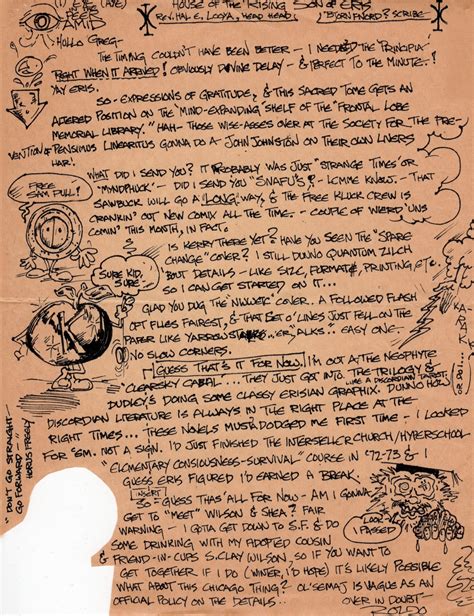 HOUSE OF THE RISING SON OF ERIS
REV. HAL E. LOOYA, HEAD HEAD,
BJORN FNORD? SCRIBE
HOLLO GREG —
THE TIMING COULDN'T HAVE BEEN BETTER — I NEEDED THE "PRINCIPIA"
RIGHT WHEN IT ARRIVED! OBVIOUSLY DIVINE DELAY — & PERFECT TO THE MINUTE!
YAY ERIS.
SO — EXPRESSIONS OF GRATITUDE, & THIS SACRED TOME GETS AN
ALTERED POSITION ON THE MIND-EXPANDING SHELF OF THE "FRONTAL LOBE
MEMORIAL LIBRARY." HAH — THOSE WISE-ASSES OVER AT THE SOCIETY FOR THE PRE-
VENTION OF PENSIMUS LINEARITUS GONNA DO A — JOHN JOHNSTON ON THEIR OWN LIVERS
HAR!
WHAT DID I SEND YOU? IT PROBABLY WAS JUST "STRANGE TIMES" OR
"MINDPHUCK" — DID I SEND YOU "SNAFU'S"? — LEMME KNOW. — THAT
SAWBUCK WILL GO A LONG WAY, & THE FREE KLUCK CREW IS
CRANKIN' OUT NEW COMIX ALL THE TIME. — COUPLE OF WEIRD 'UNS
COMIN' THIS MONTH, IN FACT.
FREE
SAM PULL!
IS KERRY THERE YET? HAVE YOU SEEN THE "SPARE
CHANGE" COVER? I STILL DUNNO QUANTOM ZILCH
'BOUT DETAILS — LIKE SIZE, FORMAT, PRINTING, ETC.
SO I CAN GET STARTED ON IT...
SURE KID,
SURE
GLAD YOU DUG THE COVER. A FOLLOWED FLASH
OPT FLIES FAIREST, & THAT SET O' LINES JUST FELL ON THE
PAPER LIKE YARROW ER "STALKS".. EASY ONE.
NO SLOW CORNERS.
GUESS THAT'S IT FOR NOW. I'M OUT AT THE NEOPHYTE
"CLEARSKY CABAL".... THEY JUST GOT INTO THE TRILOGY &
DUDLEY'S DOING SOME CLASSY ERISIAN GRAPHIX. DUNNO HOW
DISCORDIAN LITERATURE IS ALWAYS IN THE RIGHT PLACE AT THE
RIGHT TIMES... THESE NOVELS MUSTA DODGED ME FIRST TIME — I LOOKED
FOR 'EM. NOT A SIGN. I'D JUST FINISHED THE INTERSELLER CHURCH/HYPERSCHOOL
"ELEMENTARY CONSIOUSNESS-SURVIVAL" COURSE IN '72-73 & I
GUESS ERIS FIGURED I'D EARNED A BREAK
INSERT
SO — GUESS THAS' ALL FOR NOW — AM I GONNA
GET TO "MEET" WILSON & SHEA? FAIR
WARNING — I GOTA GET DOWN TO S.F. & DO
SOME DRINKING WITH MY ADOPTED COUSIN
& FRIEND-IN-CUPS S. CLAY WILSON, SO IF YOU WANT TO
GET TOGETHER IF I DO (WINTER, I'D HOPE) IT'S LIKELY POSSIBLE
WHAT ABOUT THIS CHICAGO THING? OL' SEMAJ IS VAGUE AS AN
OFFICIAL POLICY ON THE DETAILS.
OVER IN DOUBT —
"DON'T GO STRAIGHT —
GO FORWARD"
LOOK,
I PASSED